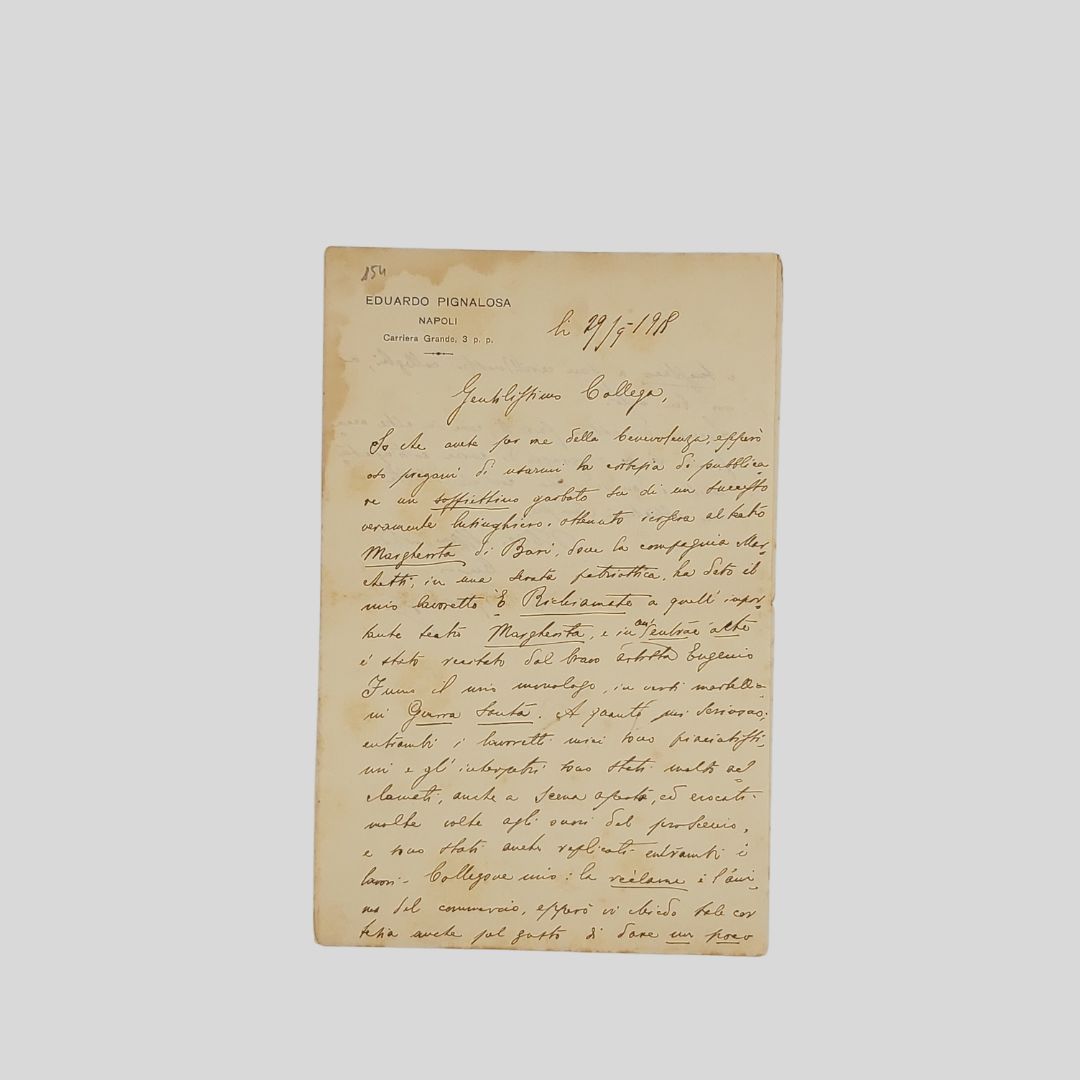 154
EDUARDO PIGNALOSA
NAPOLI
Carriera Grande, 3 p. p.
li 29/5-1918
Gentilissimo Collega,
So che avete per me della benevolenza, epperò
oso pregarvi di usarmi la cortesia di pubblica-
re un soffiettino garbato su di un successo
veramente lusinghiero, ottenuto iersera al teatro
Margherita di Bari, dove la compagnia Mar-
chetti, in una serata patriottica, ha dato il
mio lavoretto È Richiamato a quell'impor-
tante teatro Margherita, e in
è stato recitato dal bravo artista Eugenio
Fumo il mio monologo, in versi martellia-
ni Guerra Santa. A quanto mi scrivono,
entrambi i lavoretti miei sono piaciutissi-
mi e gl'interpetri sono stati molto ac-
clamati, anche a scena aperta, ed evocati
molte volte agli onori del proscenio,
e sono stati anche replicati entrambi i
lavori. Collegone mio: la réclame è l'ani-
ma del commercio, epperò vi chiedo tale cor
tesia anche pel gusto di dare un poco